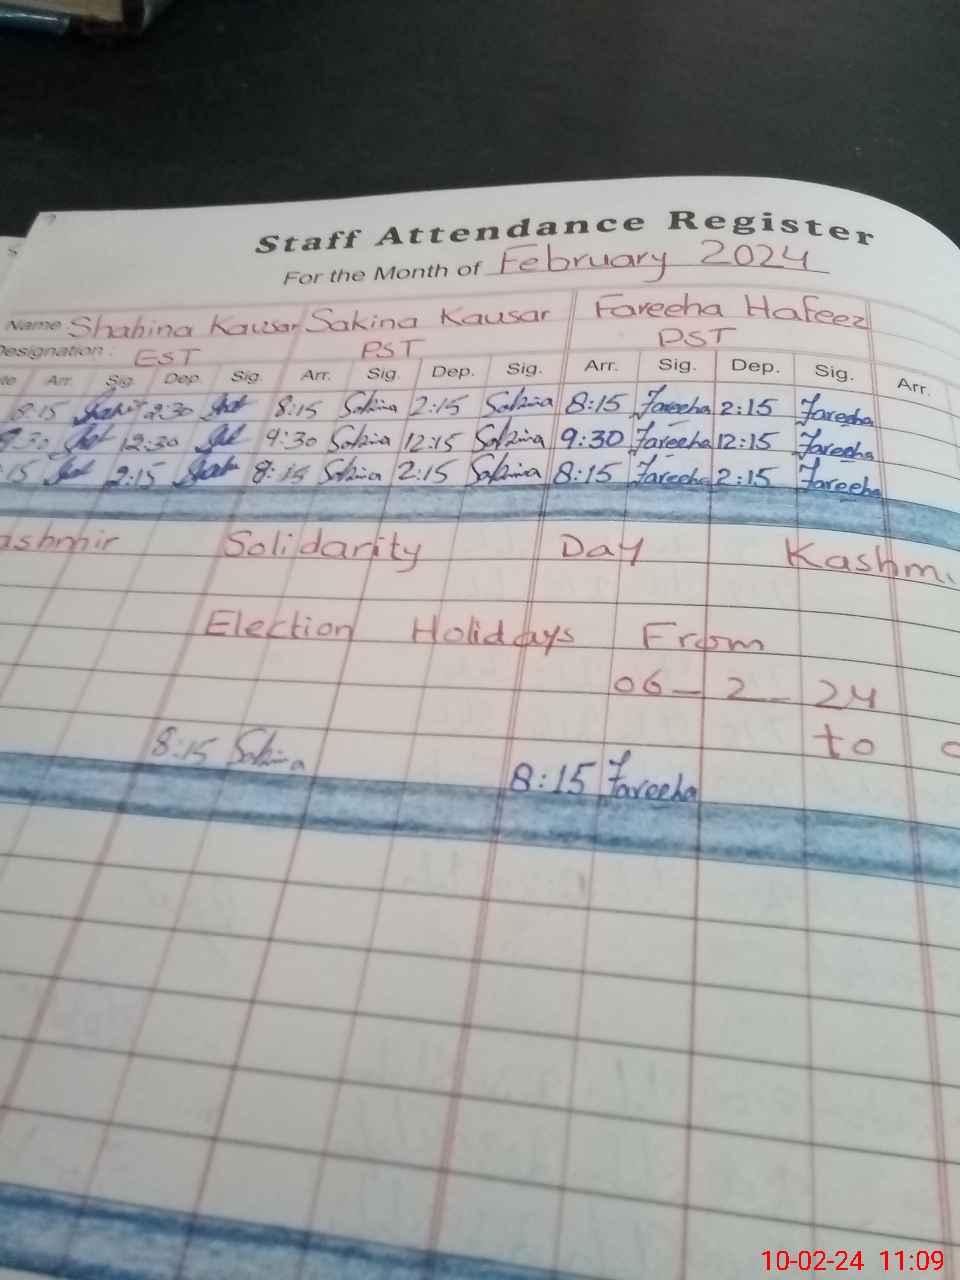 Staff Attendance Register
For the Month of February 2024
Name Shahina Kausar Sakina Kausar Fareeha Hafeez
Designation : EST PST PST
Arr. Sig. Dep. Sig. Arr. Sig. Dep. Sig. Arr. Sig. Dep. Sig. Arr.
8:15 2:30 8:15 Sakina 2:15 Sakina 8:15 Fareeha 2:15 Fareeha
9:30 12:30 9:30 Sakina 12:15 Sakina 9:30 Fareeha 12:15 Fareeha
:15 2:15 8:15 Sakina 2:15 Sakina 8:15 Fareeha 2:15 Fareeha
ashmir Solidarity Day Kashm
Election Holidays From
06-2-24
to
8:15 Sakina
8:15 Fareeha
10-02-24 11:09